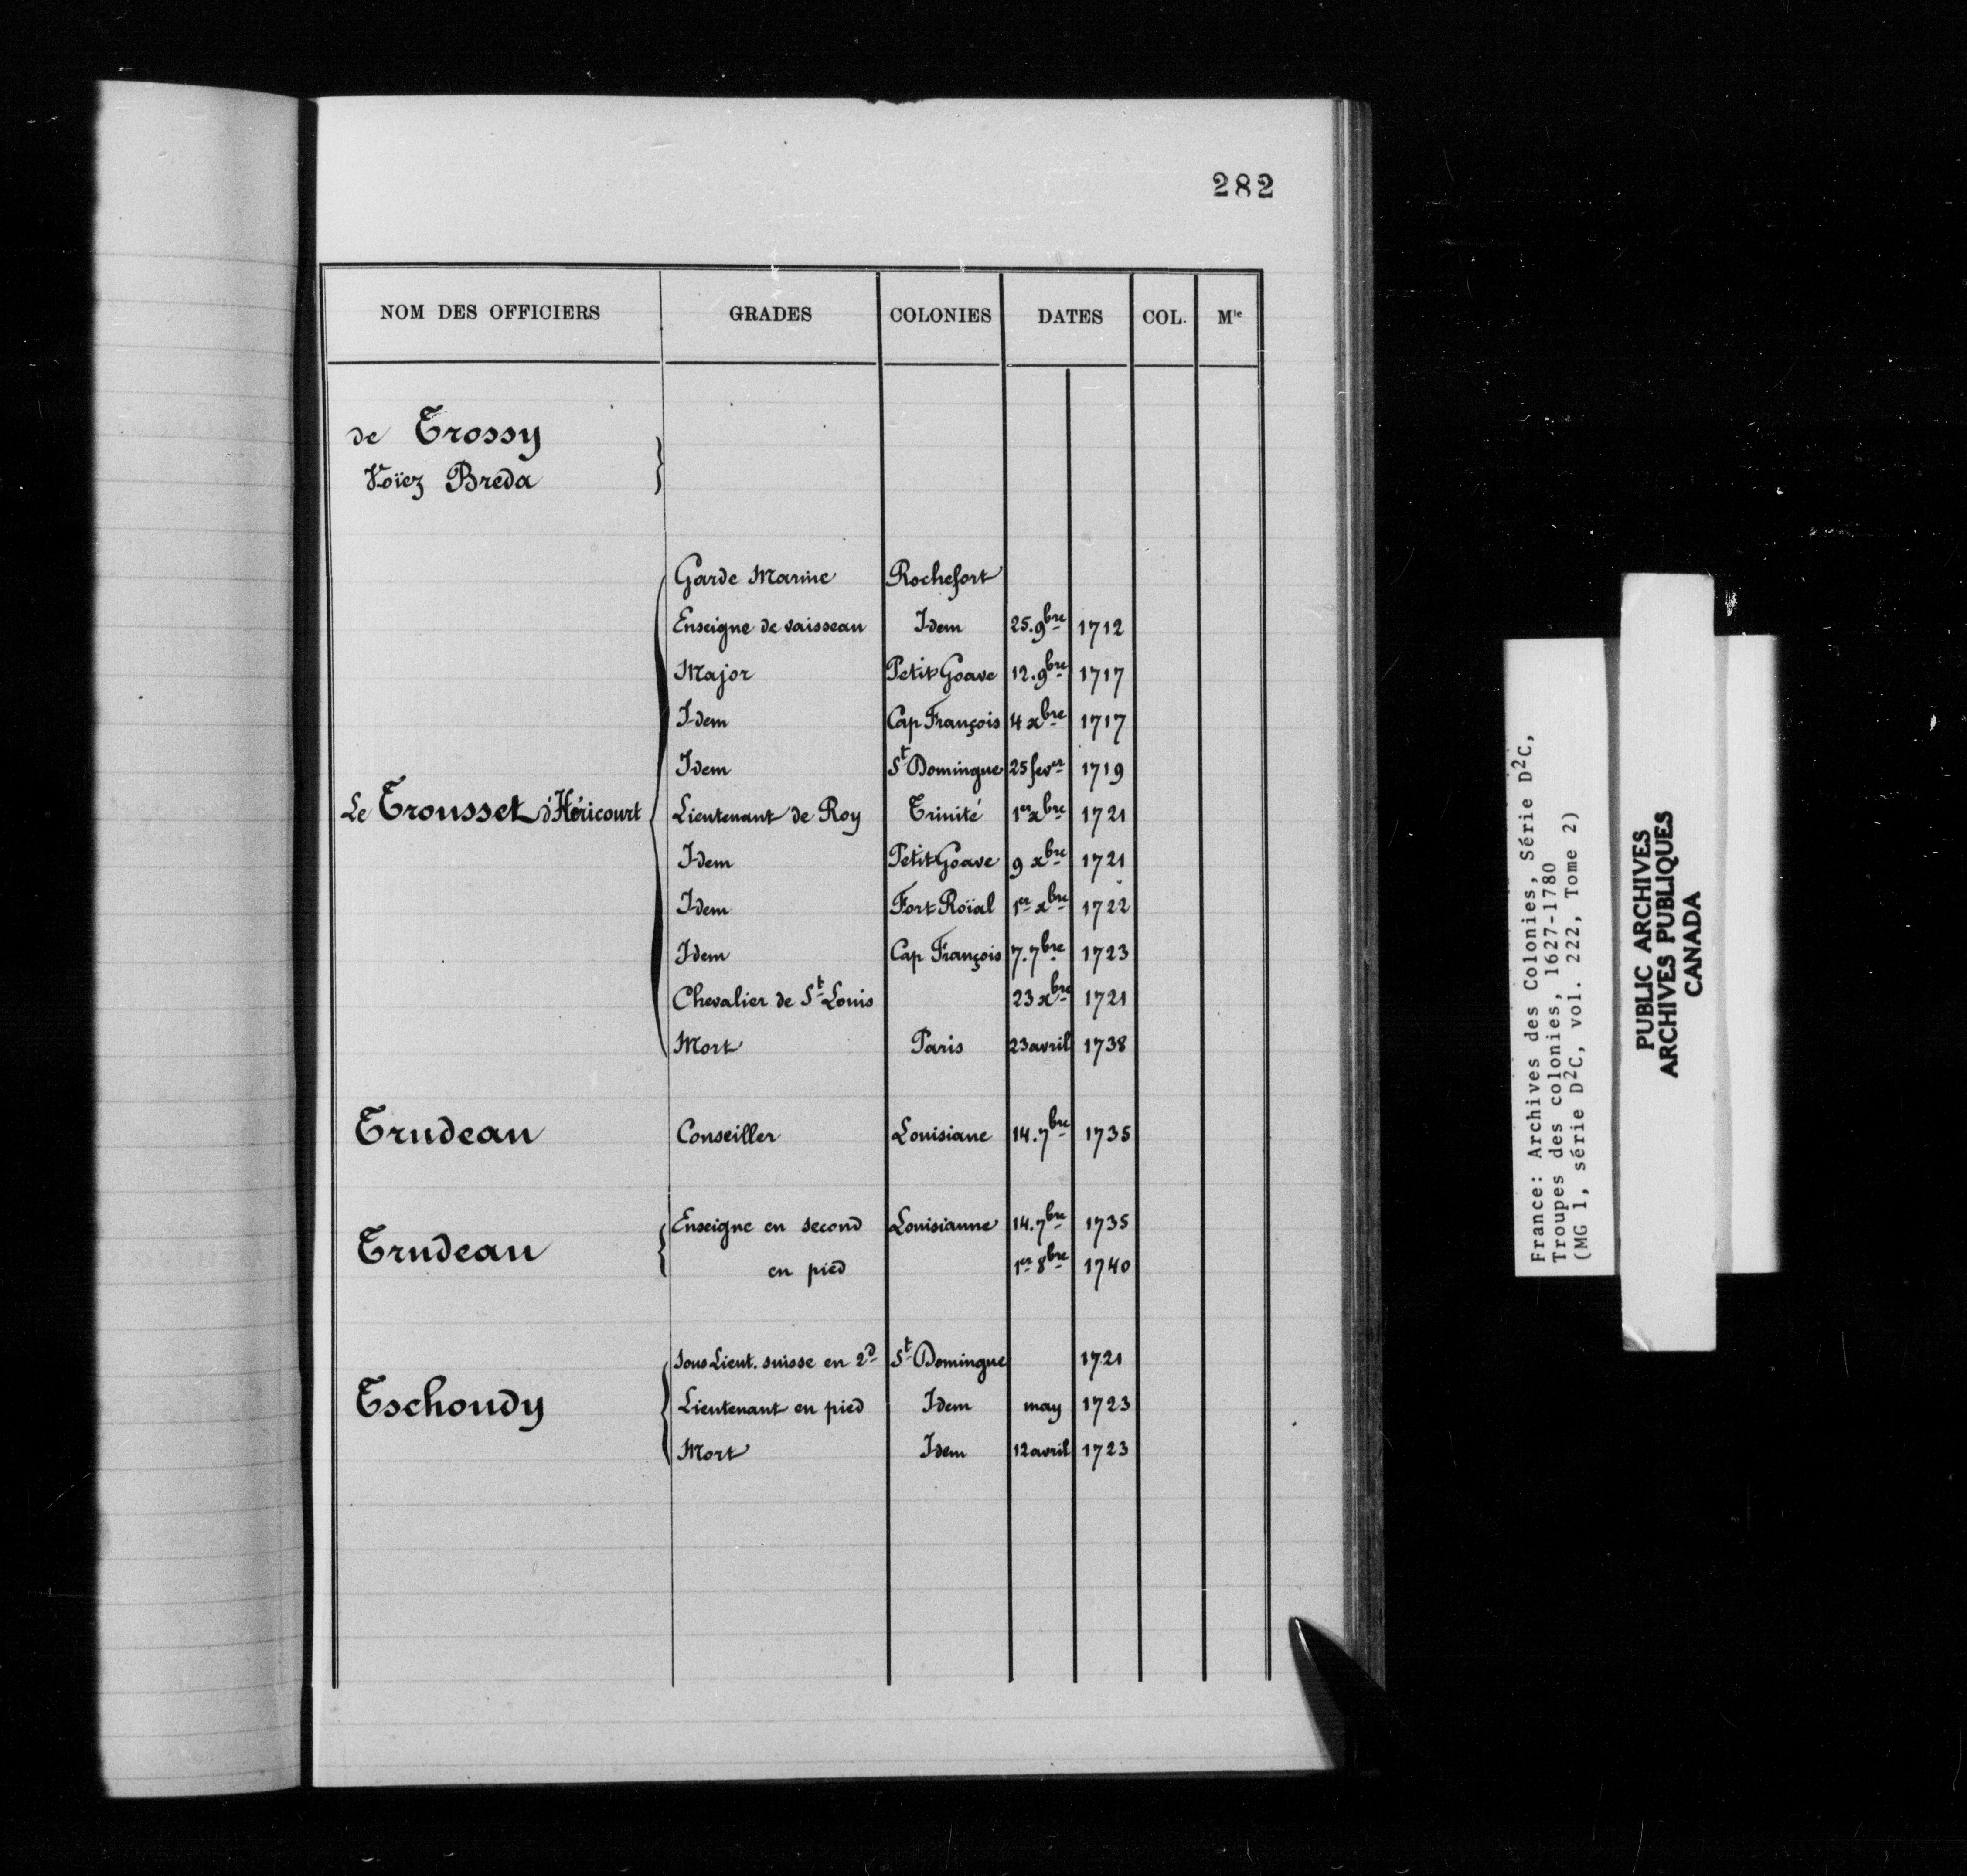 282
NOM DES OFFICIERS GRADES COLONIES DATES COL. Mle
de Trossy
Voïez Breda
Garde Marine Rochefort
Enseigne de vaisseau Idem 25.9bre 1712
Major Petit Goave 12.9bre 1717
Idem Cap François 4 xbre 1717
Idem St Domingue 25 fever 1719
Le Trousset d'Héricourt Lieutenant de Roy Trinité 1er xbre 1721
Idem Petit Goave 9 xbre 1721
Idem Fort Roïal 1er xbre 1722
Idem Cap François 7.7bre 1723
Chevalier de St Louis 23 xbre 1721
Mort Paris 23 avril 1738
Trudeau Conseiller Louisiane 14.7bre 1735
Trudeau Enseigne en second Louisianne 14.7bre 1735
en pied 1er 8bre 1740
Sous Lieut. suisse en 2d St Domingue 1721
Tschoudy Lieutenant en pied Idem may 1723
Mort Idem 12 avril 1723
France: Archives des Colonies, Série D2C,
Troupes des colonies, 1627-1780
(MG 1, série D2C, vol. 222, Tome 2)
PUBLIC ARCHIVES
ARCHIVES PUBLIQUES
CANADA